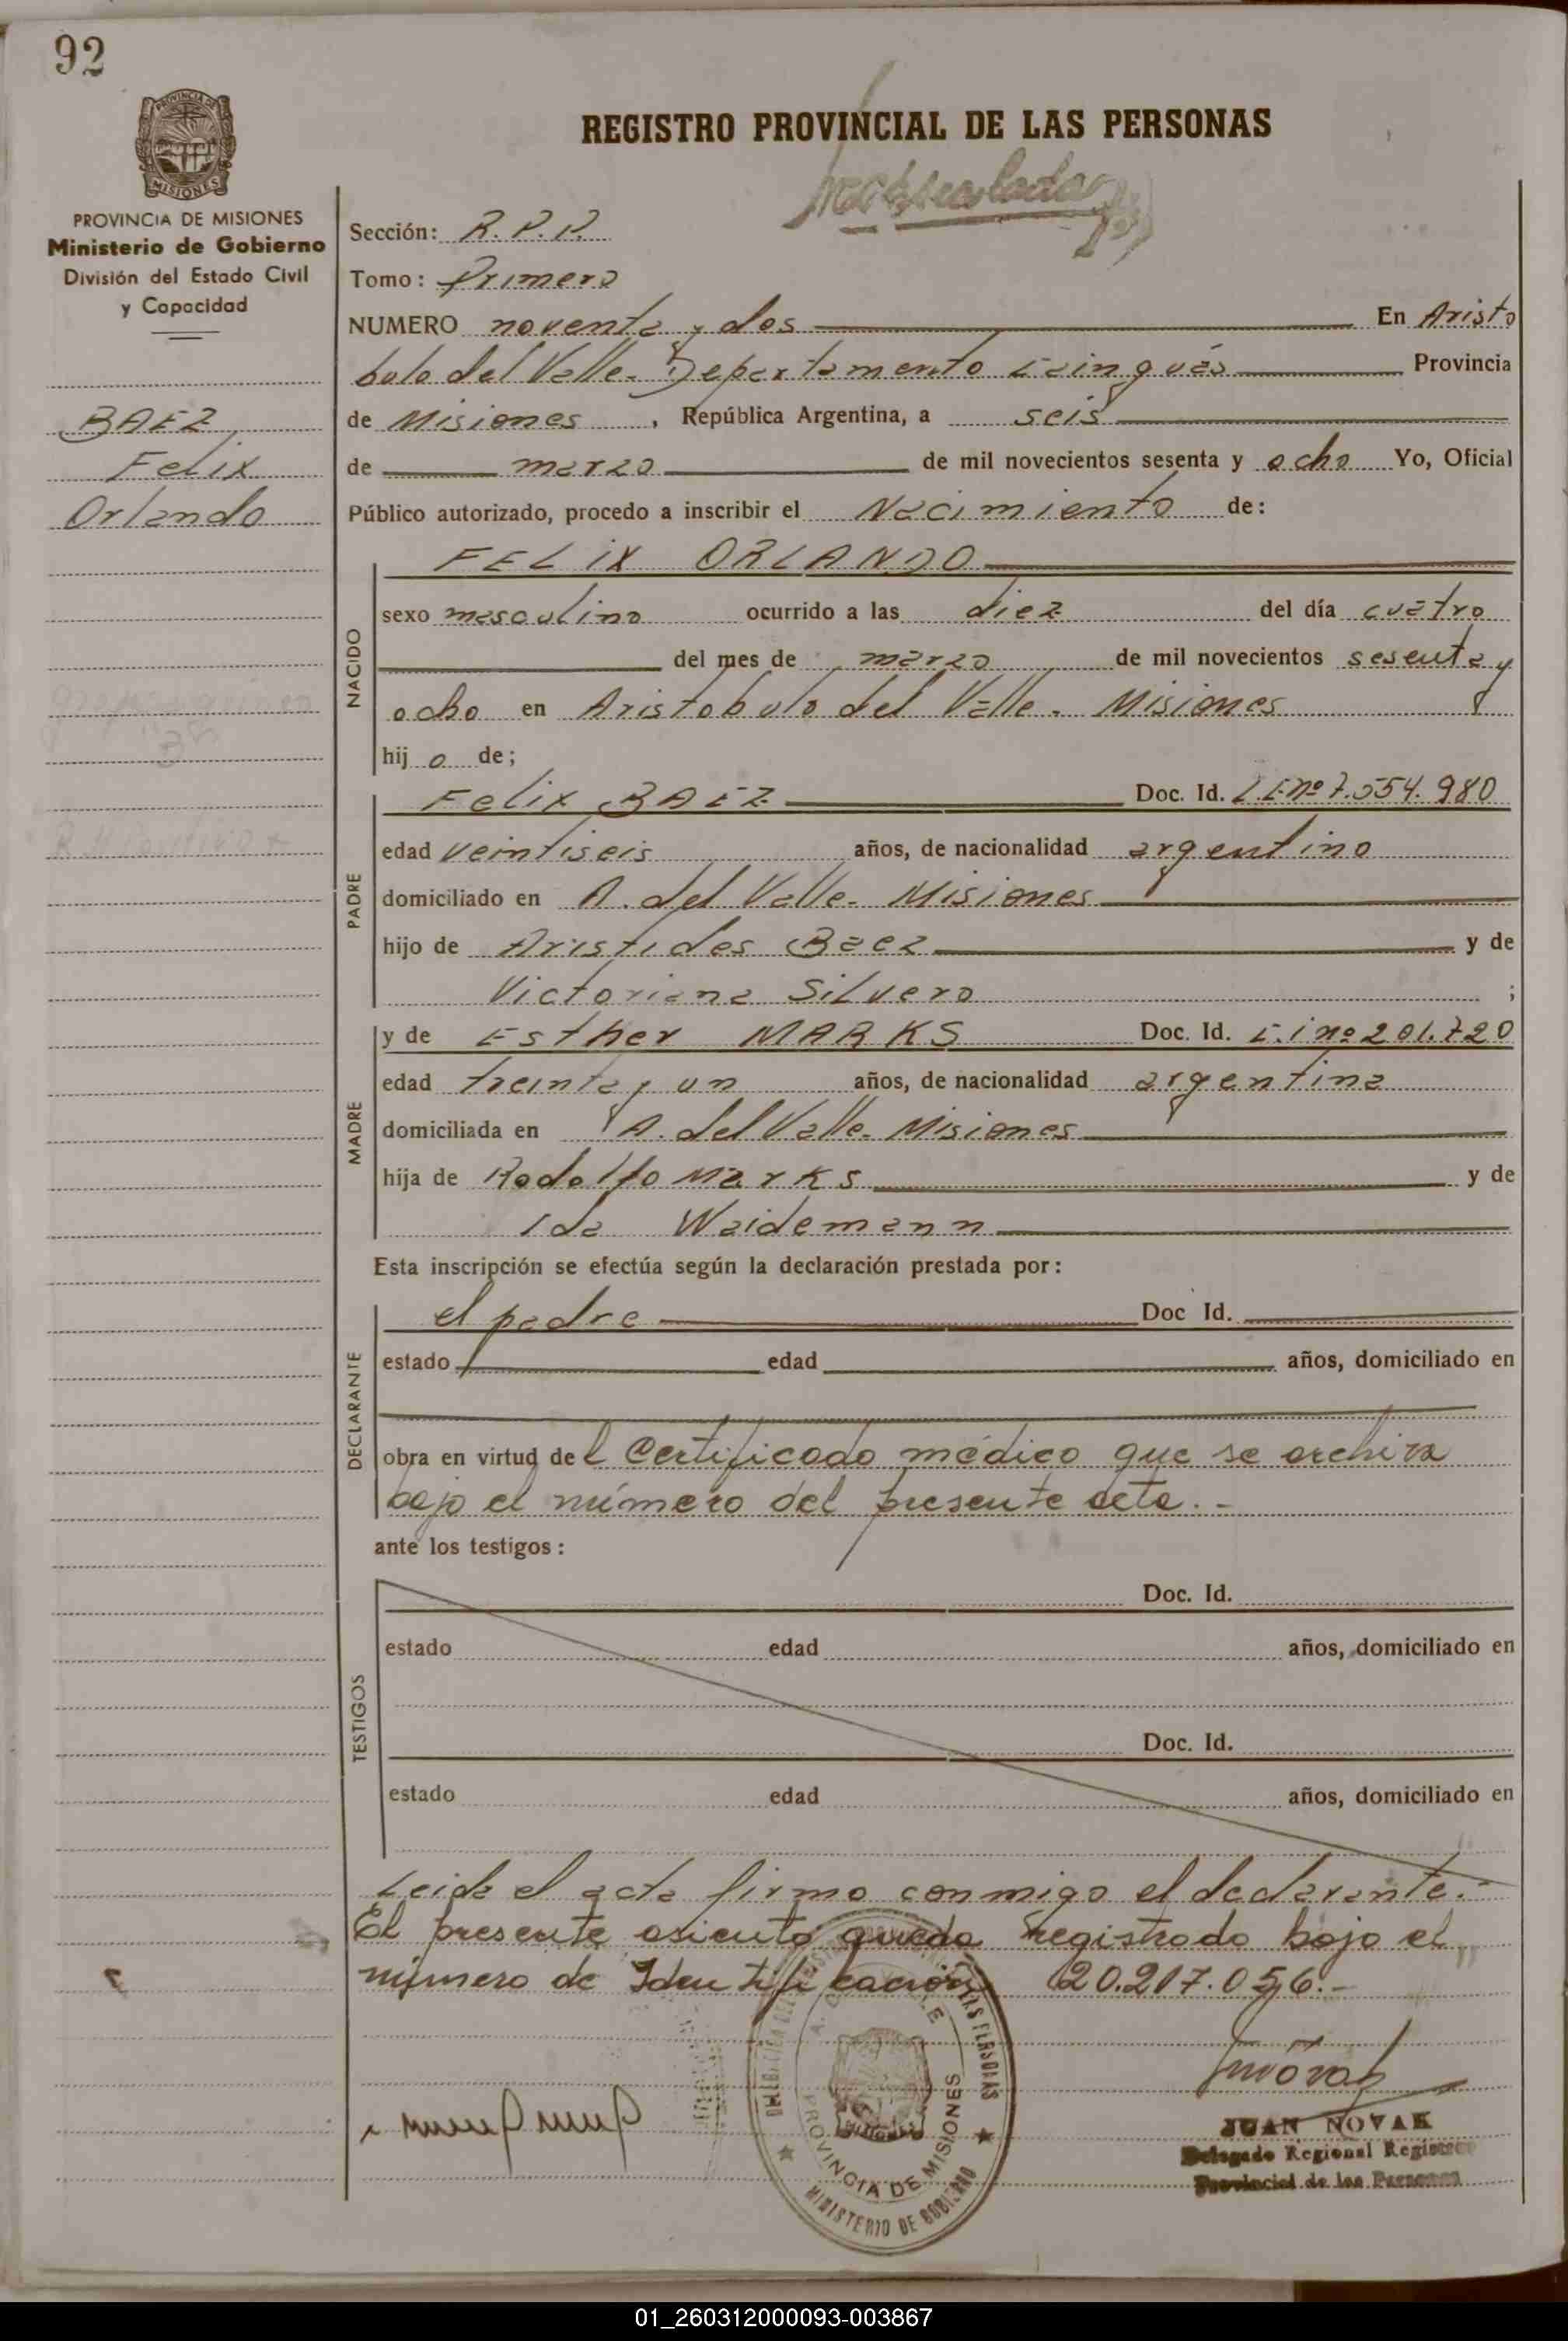 92
PROVINCIA DE
MISIONES
PROVINCIA DE MISIONES
Ministerio de Gobierno
División del Estado Civil
y Capacidad
BAEZ
Felix
Orlando
REGISTRO PROVINCIAL DE LAS PERSONAS
Sección: R.P.P.
Tomo: Primero
NUMERO noventa y dos En Aristo
bulo del Valle. Departamento Cainguás Provincia
de Misiones, República Argentina, a seis
de marzo de mil novecientos sesenta y ocho Yo, Oficial
Público autorizado, procedo a inscribir el Nacimiento de:
NACIDO
FELIX ORLANDO
sexo masculino ocurrido a las diez del día cuatro
del mes de marzo de mil novecientos sesenta y
ocho en Aristobulo del Valle. Misiones
hij o de;
PADRE
Felix BAEZ Doc. Id. L.E nº 7.554.980
edad veintiseis años, de nacionalidad argentino
domiciliado en A. del Valle. Misiones
hijo de Aristides Baez y de
Victoriana Silvero ;
MADRE
y de Esther MARKS Doc. Id. C.i nº 201.720
edad treinta y un años, de nacionalidad argentina
domiciliada en A. del Valle. Misiones
hija de Rodolfo Marks y de
Ida Waidemann
Esta inscripción se efectúa según la declaración prestada por:
DECLARANTE
el padre Doc Id.
estado edad años, domiciliado en
obra en virtud del Certificado médico que se archiva
bajo el número del presente acta.-
ante los testigos:
TESTIGOS
Doc. Id.
estado edad años, domiciliado en
Doc. Id.
estado edad años, domiciliado en
Leida el acta firmo conmigo el declarante.-
El presente asiento queda registrado bajo el
número de Identificación 20.217.056.-
PROVINCIA DE MISIONES
MINISTERIO DE GOBIERNO
MISIONES
JUAN NOVAK
Delegado Regional Registro
Provincial de las Personas
01_260312000093-003867